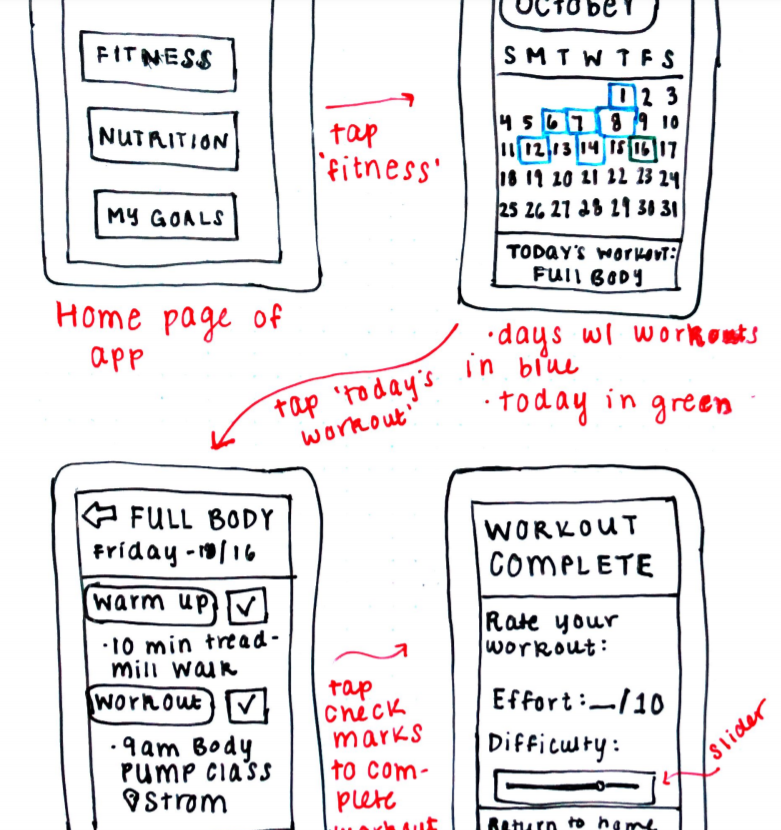 FITNESS
NUTRITION
MY GOALS
Home page of
app
tap
'fitness'
October
S M T W T F S
1 2 3
4 5 6 7 8 9 10
11 12 13 14 15 16 17
18 19 20 21 22 23 24
25 26 27 28 29 30 31
TODAY'S WORKOUT:
FULL BODY
·days w/ workouts
in blue
·today in green
tap 'today's
workout'
FULL BODY
Friday - 10/16
warm up
·10 min tread-
mill walk
workout
·9am Body
PUMP CLASS
Strom
tap
check
marks
to com-
plete
workout
WORKOUT
COMPLETE
Rate your
workout:
Effort: _/10
Difficulty:
slider
Return to home